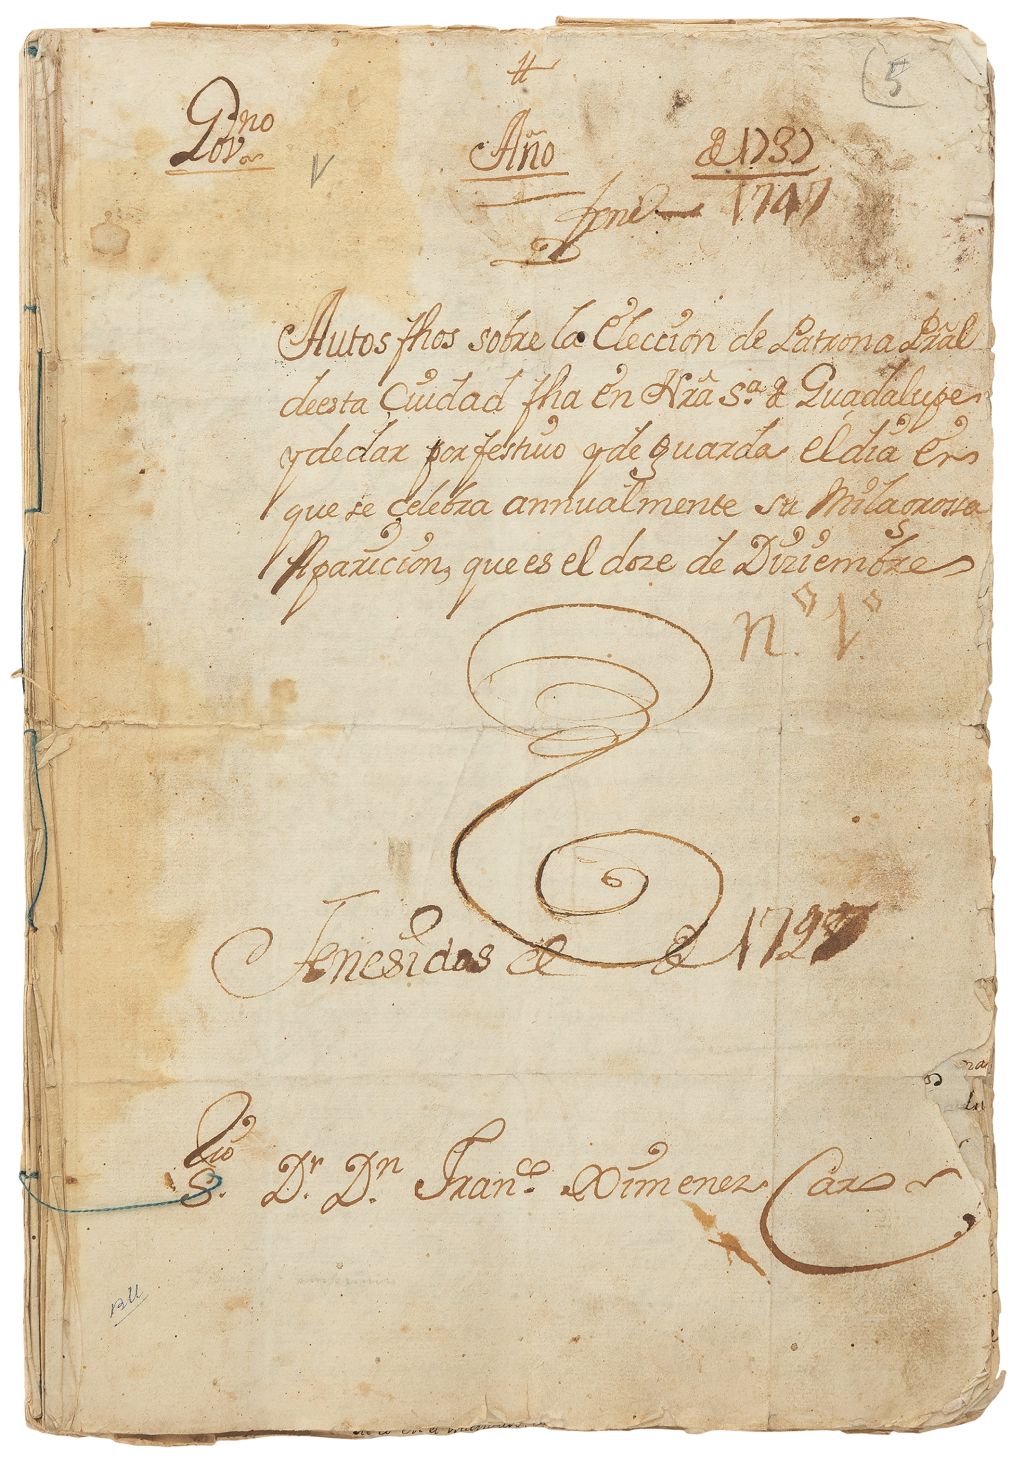 5
Govno
Año de 1737
fene 1747
Autos fhos sobre la Eleccion de Patrona Pral
deesta Ciudad fha en Nra Sa. de Guadalupe
y dedar por festiuo y de guarda el dia en
que se celebra annualmente su Milagrossa
Aparicion, que es el doze de Diziembre
n.º 1.º
Fenesidos el de 1727
Srio
S. Dr. Dn. Franco. Ximenez Caro